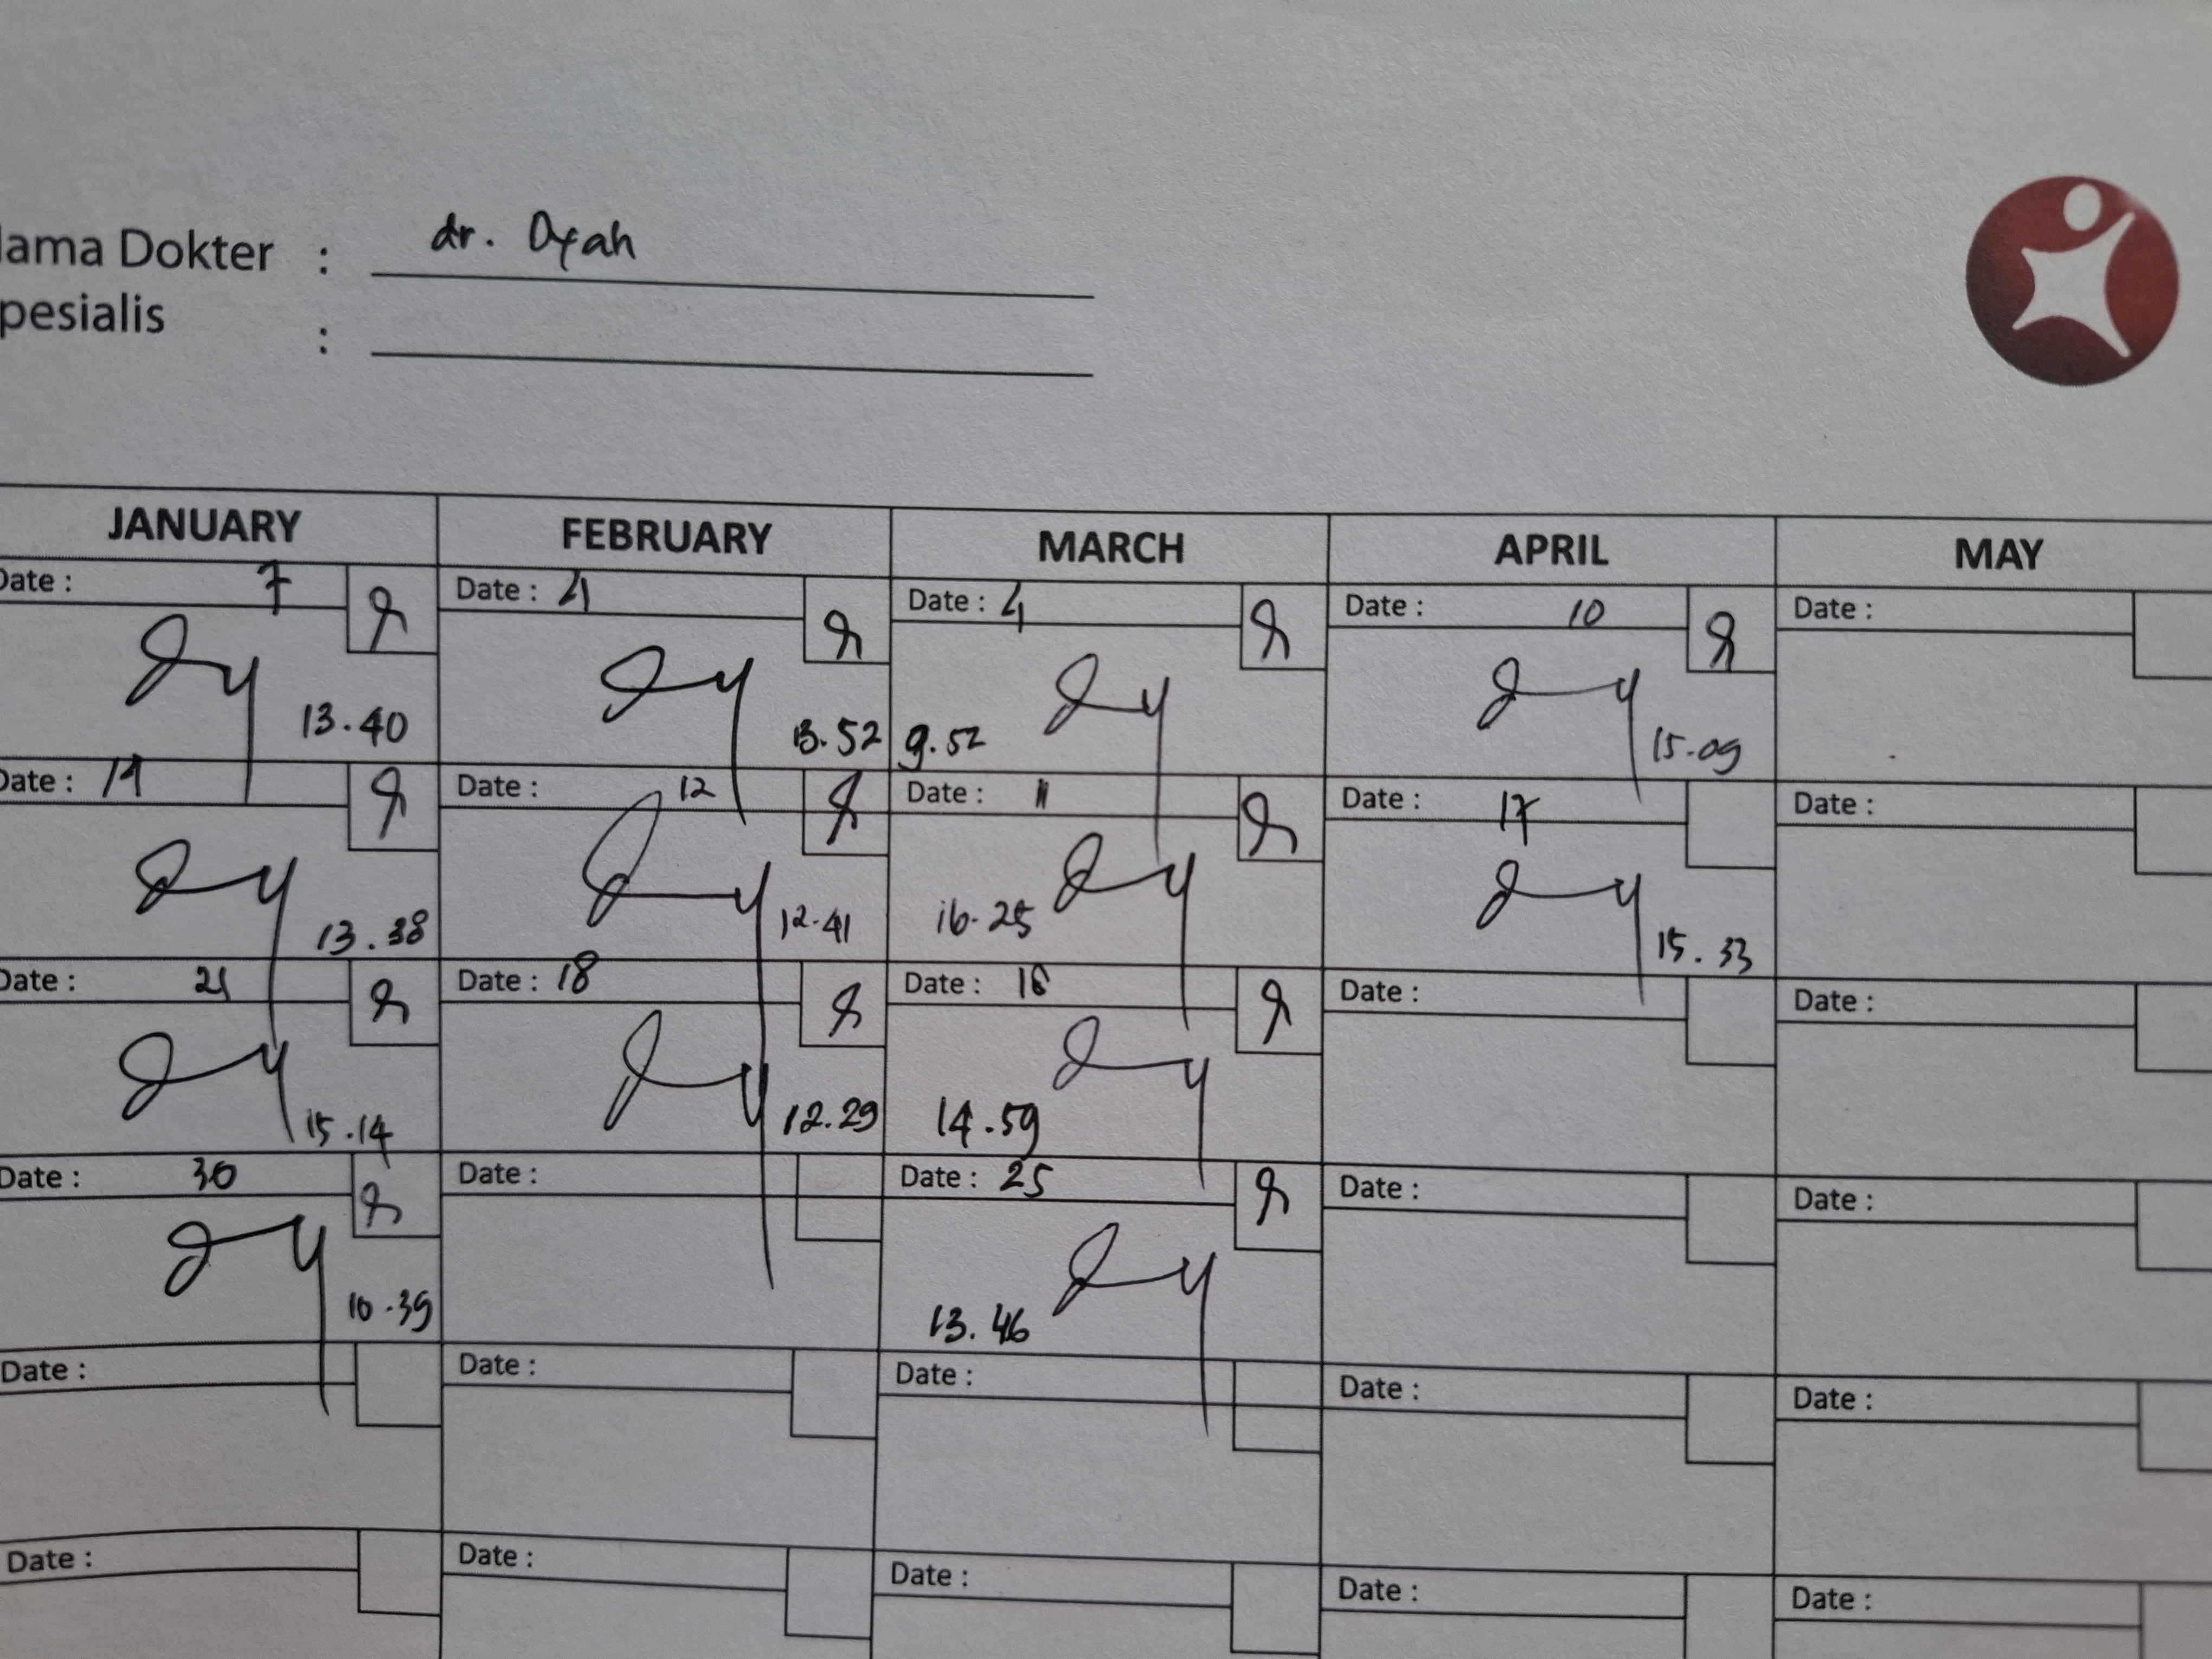 ama Dokter : dr. Dyah
pesialis :
JANUARY FEBRUARY MARCH APRIL MAY
Date : 7 Date : 4 Date : 4 Date : 10 Date :
13.40 13.52 9.52 15.09
Date : 14 Date : 12 Date : 11 Date : 17 Date :
13.38 12.41 16.25 15.33
Date : 21 Date : 18 Date : Date : Date :
15.14 12.29 14.59
Date : 30 Date : Date : 25 Date : Date :
10.39 13.46
Date : Date : Date : Date : Date :
Date : Date : Date : Date : Date :